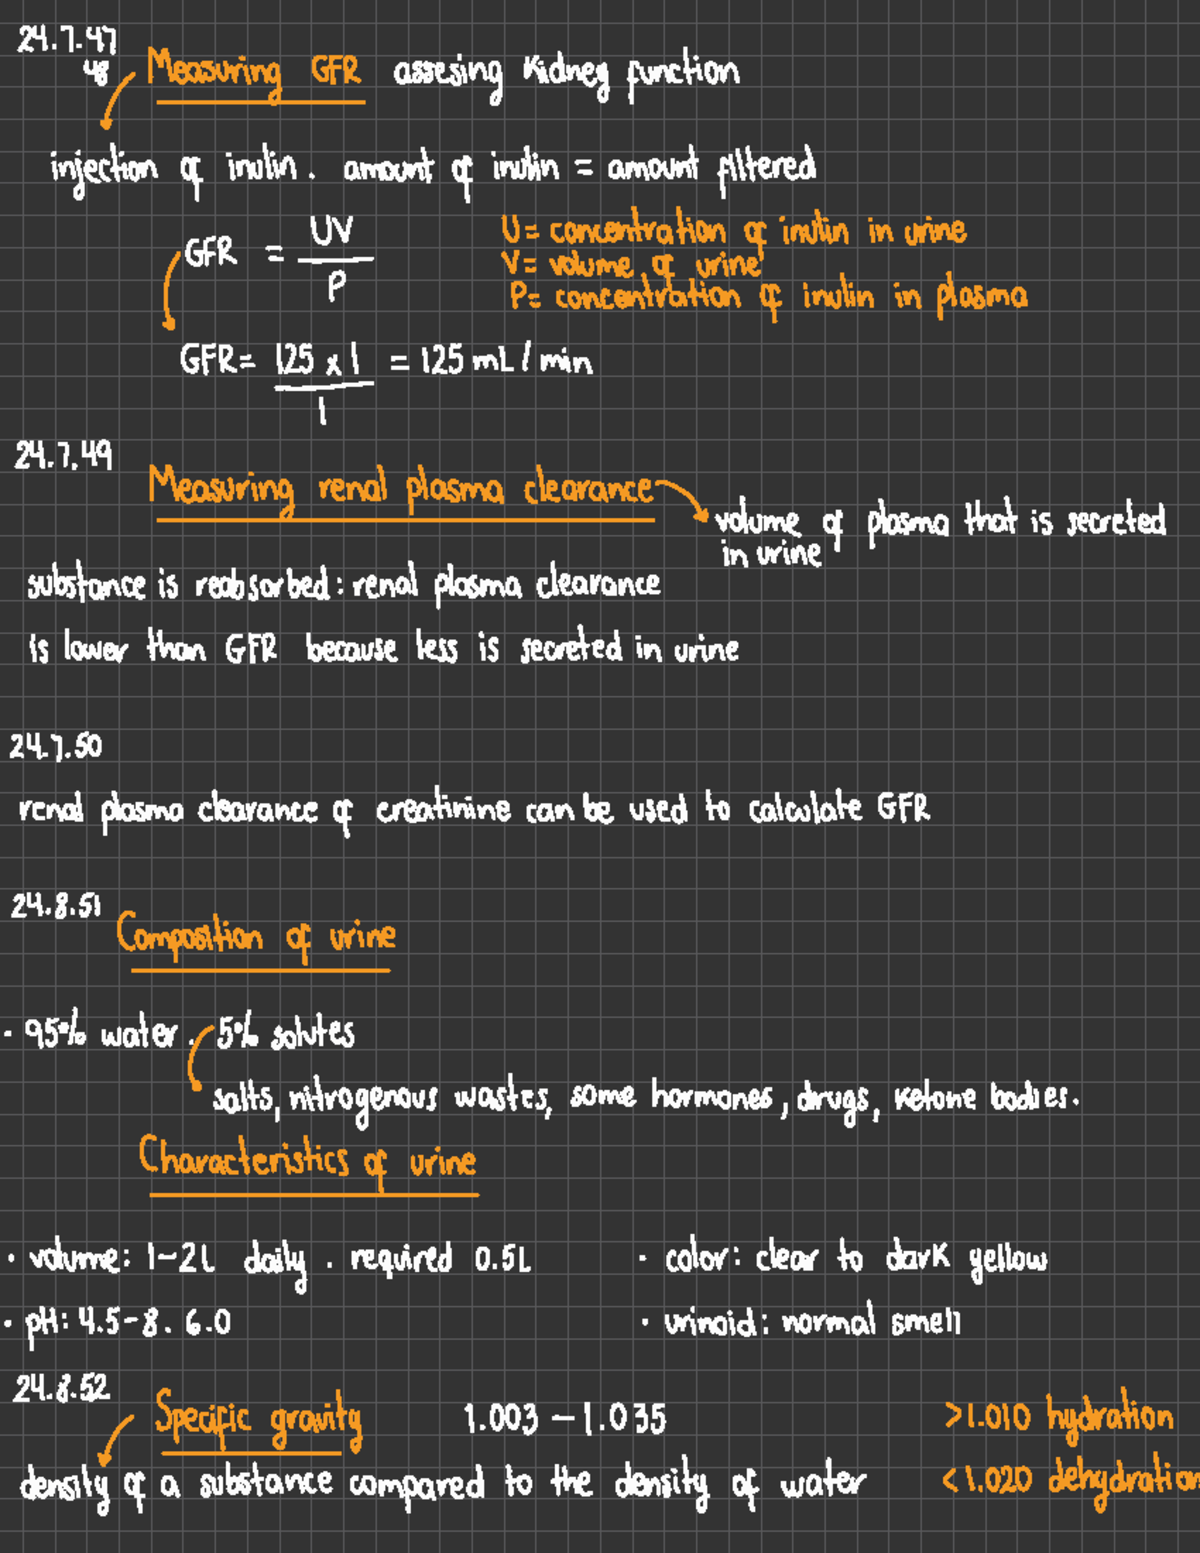 24.7.47
48
Measuring GFR assesing Kidney function
injection of inulin. amount of inulin = amount filtered
GFR = UV / P
U= concentration of inulin in urine
V= volume of urine
P= concentration of inulin in plasma
GFR= 125 x 1 / 1 = 125 mL / min
24.7.49
Measuring renal plasma clearance
volume of plasma that is secreted
in urine
substance is reabsorbed: renal plasma clearance
is lower than GFR because less is secreted in urine
24.7.50
renal plasma clearance of creatinine can be used to calculate GFR
24.8.51
Composition of urine
· 95% water. 5% solutes
salts, nitrogenous wastes, some hormones, drugs, ketone bodies.
Characteristics of urine
· volume: 1-2L daily. required 0.5L
· color: clear to dark yellow
· pH: 4.5-8. 6.0
· urinoid: normal smell
24.8.52
Specific gravity 1.003 - 1.035
>1.010 hydration
density of a substance compared to the density of water
<1.020 dehydration